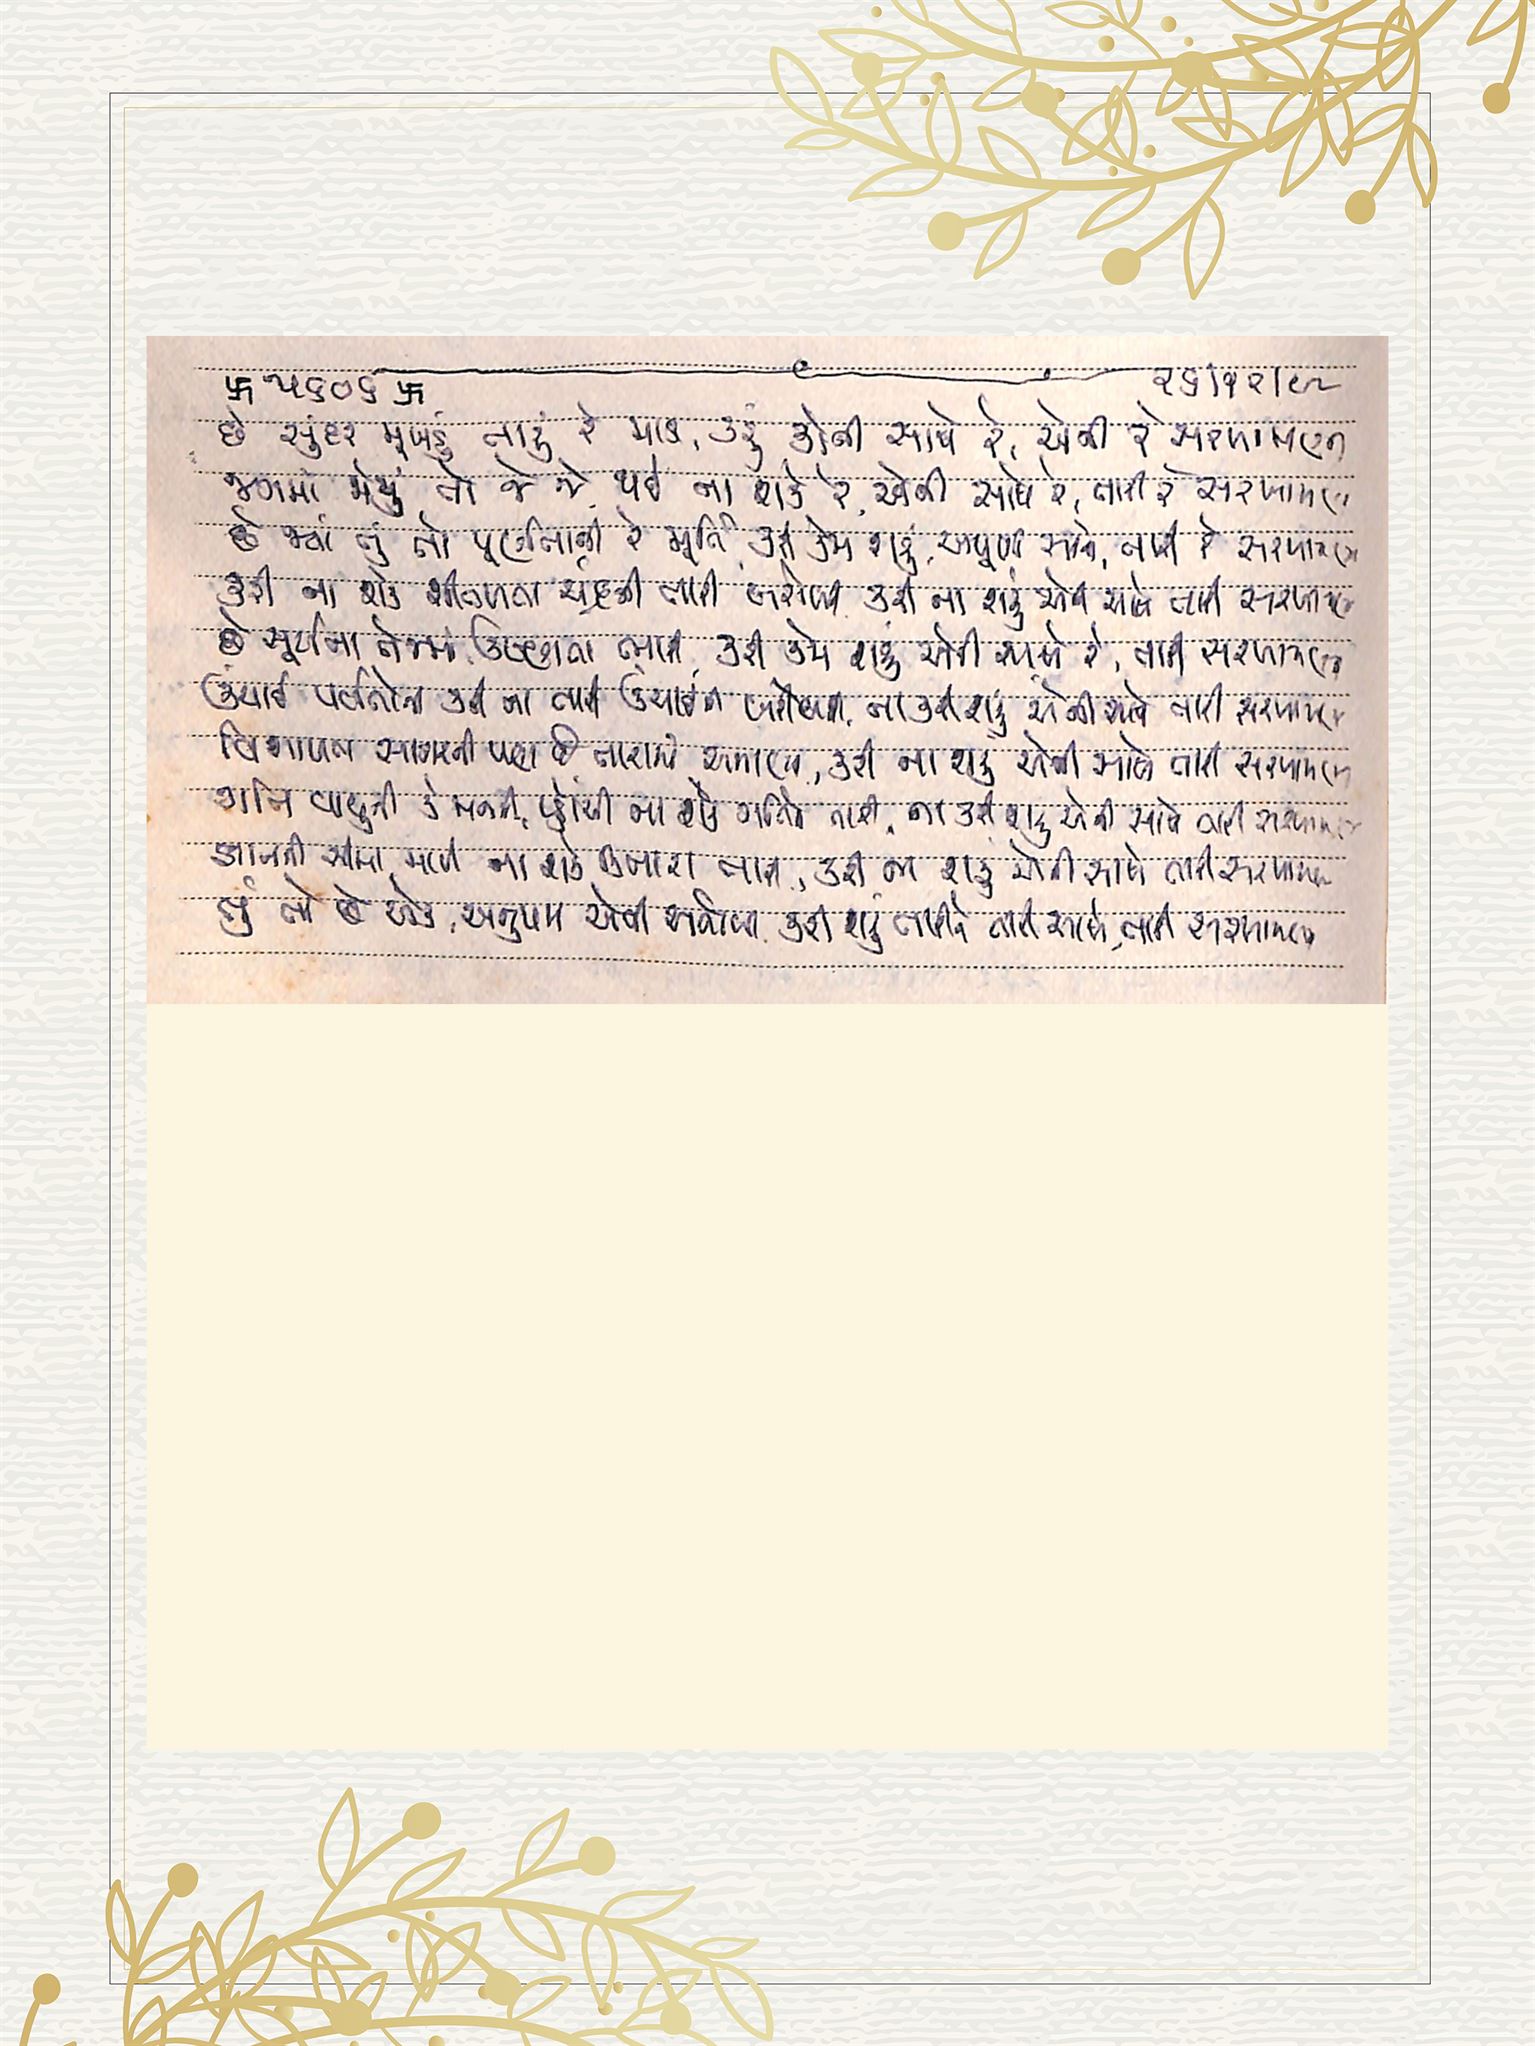 卐 ૫૬૦૬ 卐 ૨૬/૧૨/૯૫
છે સુંદર મુખડું તારું રે માત, કરું કોની સાથે રે, એની રે સરખામણી
જગમાં મેળું તો જે જે, થઈ ના શકે રે, એની સાથે રે, તારી રે સરખામણી
છે જ્યાં તું તો પૂર્ણતાની રે મૂર્તિ, કરી કેમ શકું, અપૂર્ણ સાથે, તારી રે સરખામણી
કરી ના શકે શીતળતા ચંદ્રની તારી બરોબરી કરી ના શકું એની સાથે તારી સરખામણી
છે સૂર્યના તેજમાં ઉષ્ણતા ભારી, કરી કેમ શકું એની સાથે રે, તારી સરખામણી
ઊંચાઈ પર્વતોની કરે ના તારી ઊંચાઈની બરોબરી, ના કરી શકું એની સાથે તારી સરખામણી
વિશાળતા સાગરની પણ છે તારામાં સમાણી, કરી ના શકું એની સાથે તારી સરખામણી
ગતિ વાયુની કે મનની, પ્હોંચી ના શકે ગતિને તારી, ના કરી શકું એની સાથે તારી સરખામણી
જ્ઞાનની સીમા માપી ના શકે સીમા તારી, કરી ના શકું એની સાથે તારી સરખામણી
તું તો છે એક, અનુપમ એવી શક્તિશાળી કરી શકું તારીને તારી સાથે, તારી સરખામણી